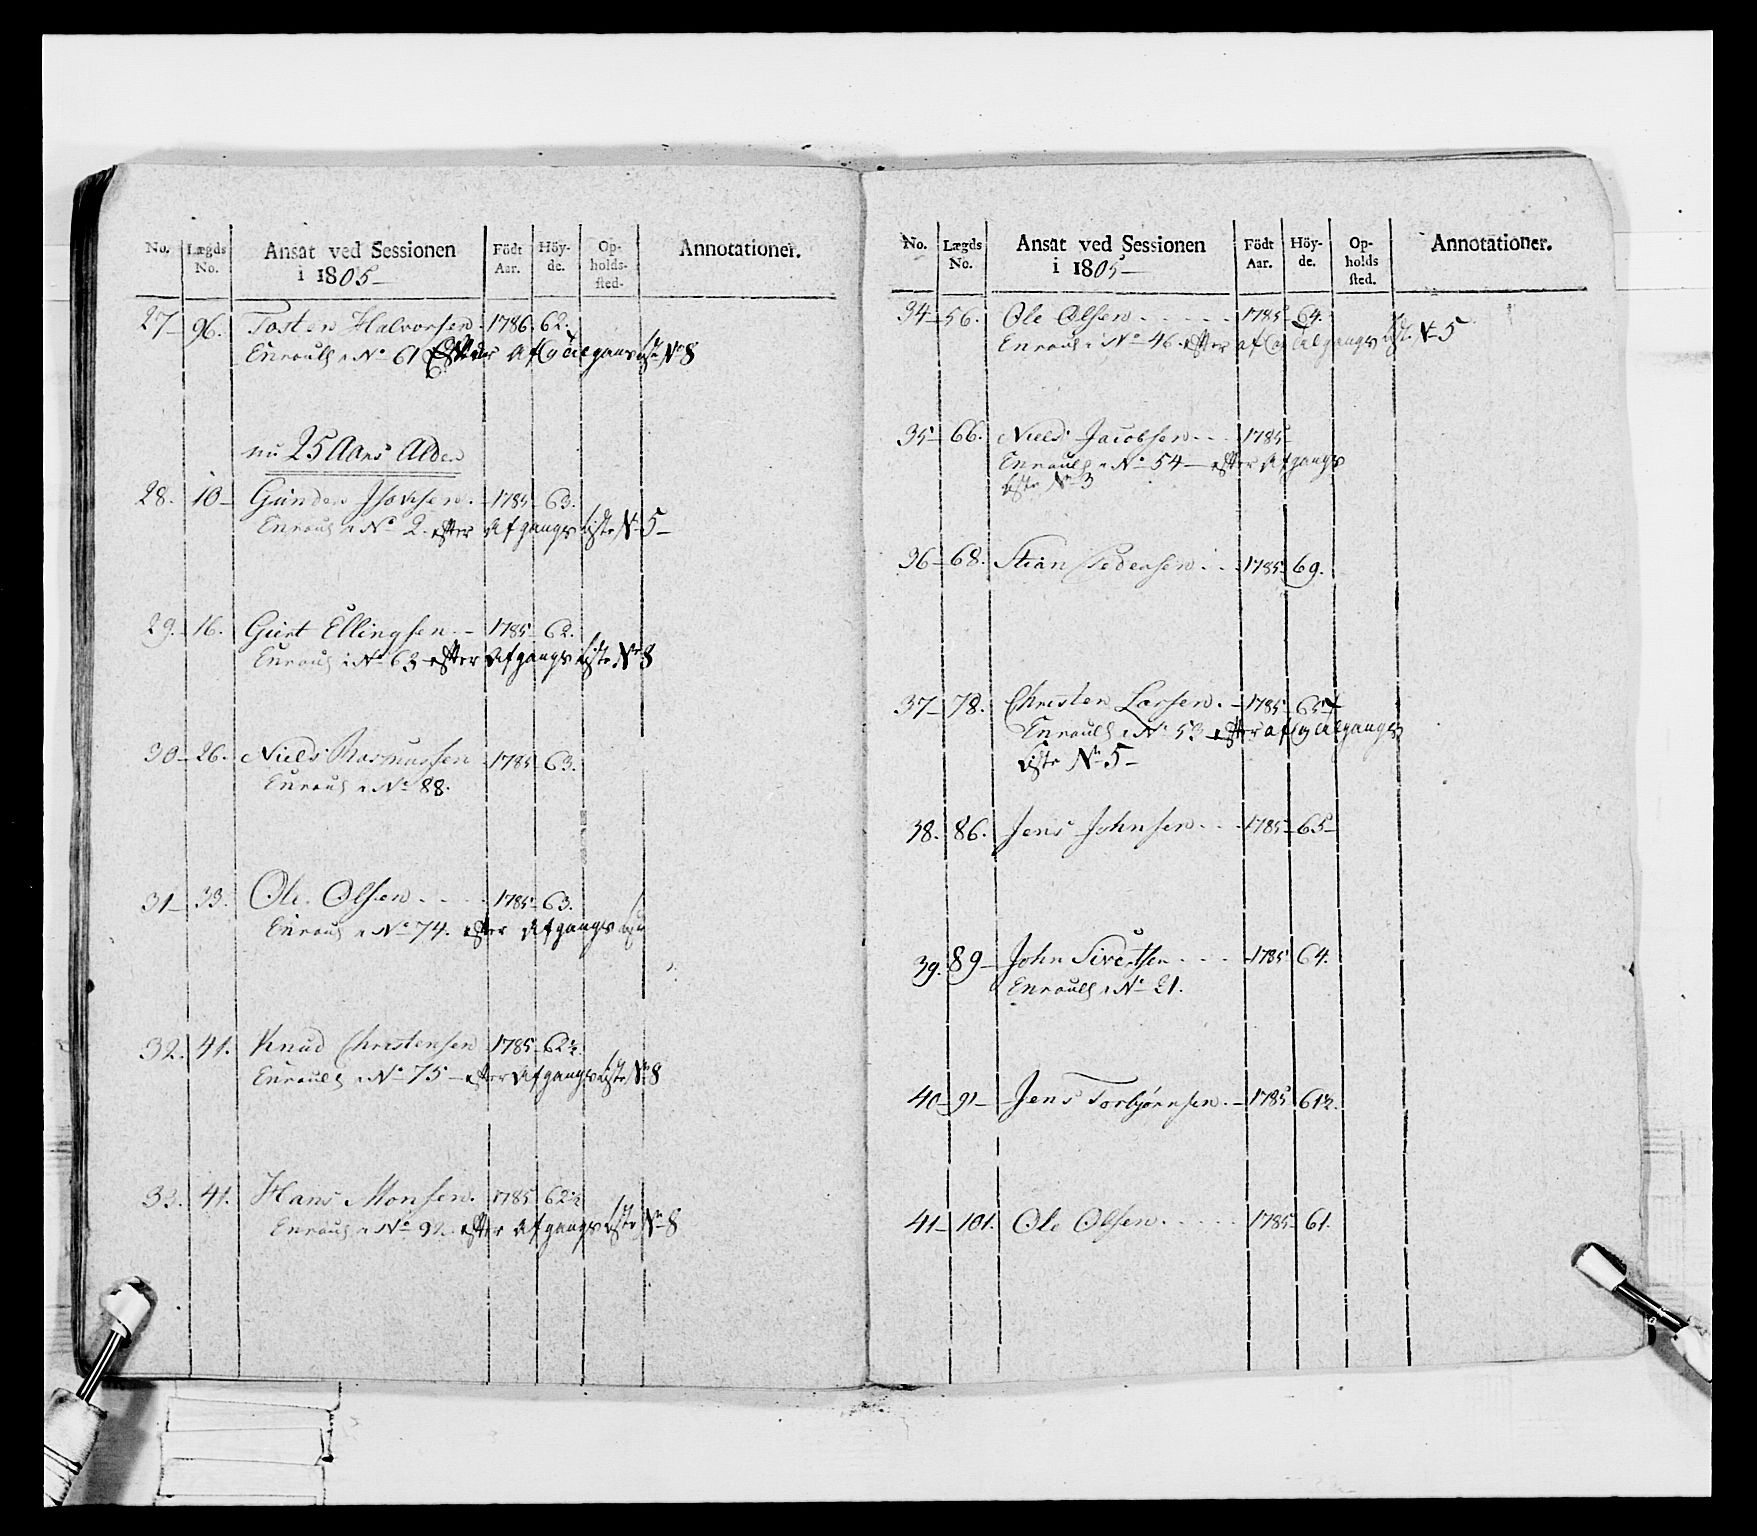 No. Lægds No. Ansat ved Sessionen i 1805 Födt Aar. Höy-de. Op-holds-sted. Annotationer.
27 96. Tosten Halvorsen 1786. 62.
Enroull i No 61 Afgangs No 8
nu 25 Aars Alder
28. 10 Gunder 1785 63.
Enroull i No 2. efter Afgangs Liste No 5
29. 16. Giert Ellingsen 1785 62.
Enroull i No 63 efter Afgangs Liste No 8
30 26. Niels Rasmussen 1785 63.
Enroull i No 88.
31 33. Ole Olsen 1785 63.
Enroull i No 74. efter Afgangs
32. 41. Knud Christensen 1785 62½.
Enroull i No 75 efter Afgangs Liste No 8
33. 41. Hans Monsen. 1785 62½
Enroull i No 92. efter Afgangs Liste No 8
No. Lægds No. Ansat ved Sessionen i 1805 Födt Aar. Höy-de. Op-holds sted. Annotationer.
34 56. Ole Olsen 1785 64.
Enroull i No 46. efter af og Tilgangs List. No 5
35 66. Niels Jacobsen 1785
Enroull i No 54 efter Afgangs
Liste No 3
36 68. Stian Pedersen 1785 69.
37 78. Christen Larsen. 1785
Enroull i No 53 efter af og Tilgangs
Liste No 5
38. 86. Jens Johnsen 1785 65
39. 89 John Sivertsen 1785 64.
Enroull i No 21.
40 91 Jens Torbjørnsen. 1785 61½.
41 101. Ole Olsen 1785 61.